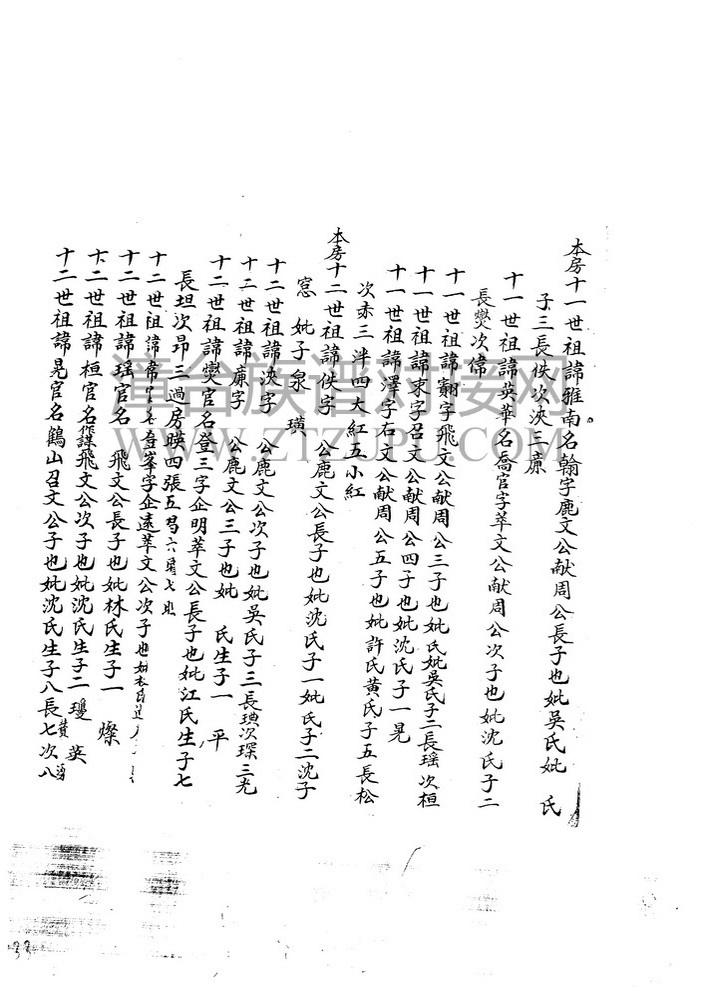 本房十一世祖諱雅南名翰字鹿文公献周公長子也妣吳氏妣　氏
子三長佚次泱三廉
十一世祖諱英華名喬官字莘文公献周公次子也妣沈氏子二
長爕次偉
十一世祖諱翽字飛文公献周公三子也妣氏妣吳氏子二長瑶次桓
十一世祖諱東字召文公献周公四子也妣沈氏子一晃
十一世祖諱澤字右文公献周公五子也妣許氏黄氏子五長松
次赤三泮四大紅五小紅
本房十二世祖諱佚字　公鹿文公長子也妣沈氏子一妣氏子二沈子
窓　妣子泉　璜
十二世祖諱泱字　公鹿文公次子也妣吳氏子三長璜次琛三光
十二世祖諱廉字　公鹿文公三子也妣　氏生子一　平
十二世祖諱爕官名登三字企明莘文公長子也妣江氏生子七
長坦次昂三過房暎四張五昺六七
十二世祖諱官名登峯字企遠莘文公次子也妣
十二世祖諱瑶官名　飛文公長子也妣林氏生子一　燦
十二世祖諱桓官名謀飛文公次子也妣沈氏生子二　瓊　英
十二世祖諱晃官名鶴山召文公子也妣沈氏生子八長七次八
漳台族谱对接网
WWW.ZTZUPU.COM
33